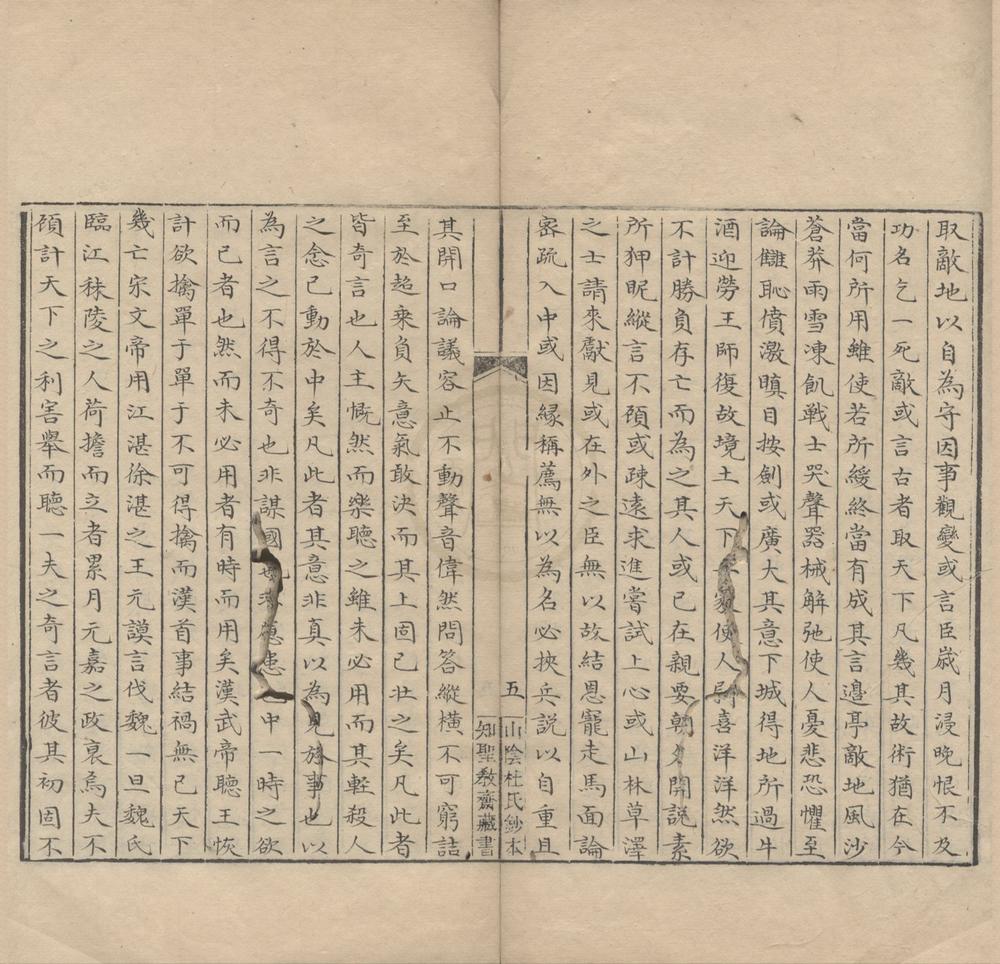 取敵地以自為守因事觀變或言臣歲月浸晚恨不及
功名乞一死敵或言古者取天下凡幾其故術猶在今
當何所用雖使若所緩終當有成其言邊亭敵地風沙
蒼莽雨雪凍飢戰士哭聲器械解弛使人憂悲恐懼至
論讎恥憤激瞋目按劍或廣大其意下城得地所過牛
酒迎勞王師復故境土天下無數使人喜洋洋然欲
不計勝負存亡而為之其人或已在親要朝夕開說素
所狎昵縱言不顧或疎遠求進嘗試上心或山林草澤
之士請來獻見或在外之臣無以故結恩寵走馬面論
密疏入中或因縁稱薦無以為名必挾兵説以自重且
五
山陰杜氏鈔本
知聖教齋藏書
其開口論議容止不動聲音偉然問答縱橫不可窮詰
至於超乘負矢意氣敢決而其上固已壯之矣凡此者
皆奇言也人主慨然而樂聽之雖未必用而其輕殺人
之念已動於中矣凡此者其意非真以為見於事也以
為言之不得不奇也非謀國患中一時之欲
而已者也然而未必用者有時而用矣漢武帝聽王恢
計欲擒單于單于不可得擒而漢首事結禍無已天下
幾亡宋文帝用江湛徐湛之王元謨言伐魏一旦魏氏
臨江秣陵之人荷擔而立者累月元嘉之政衰焉夫不
顧計天下之利害舉而聽一夫之奇言者彼其初固不